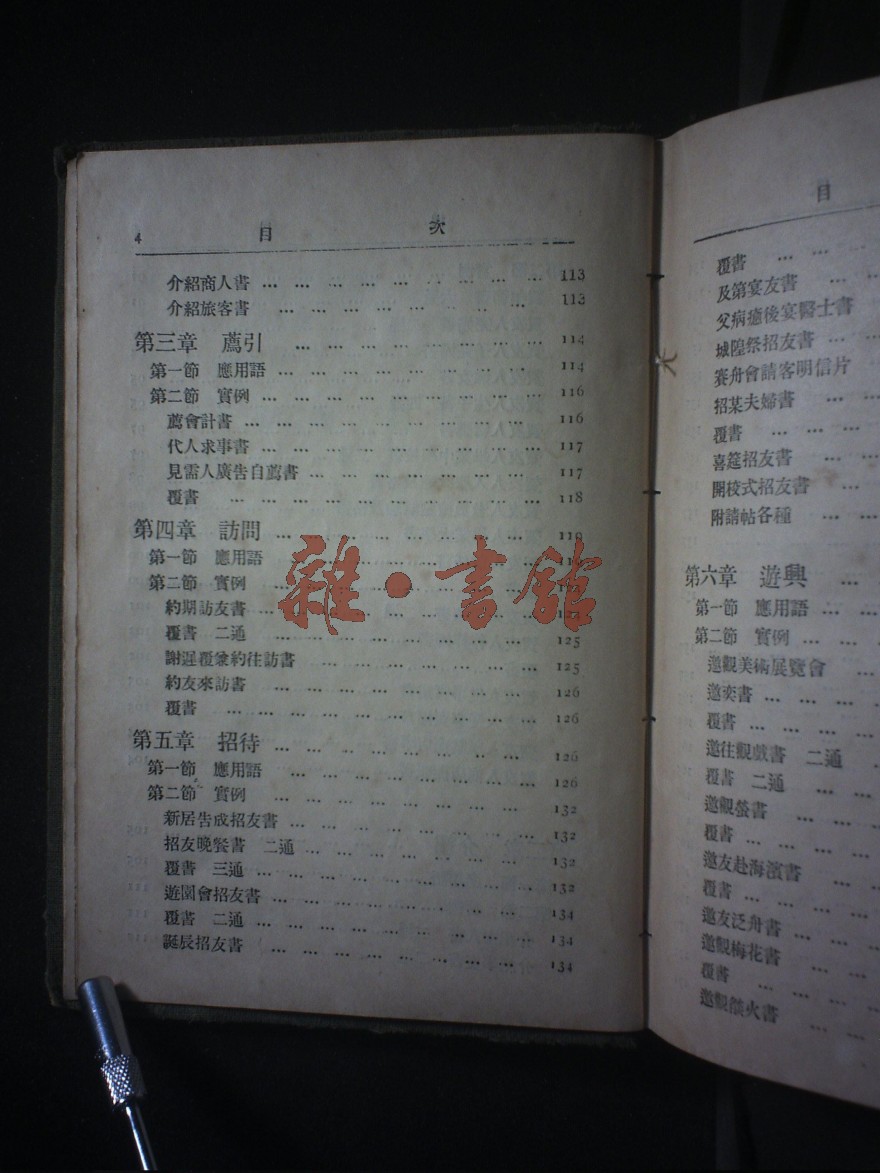 4 目 次
介紹商人書 … … … … … … … … 113
介紹旅客書 … … … … … … … 113
第三章 薦引 … … … … … … … 114
第一節 應用語 … … … … … … … … 114
第二節 實例 … … … … … … … … 116
薦會計書 … … … … … … … … 116
代人求事書 … … … … … … … … 117
見需人廣告自薦書 … … … … … … … 117
覆書 … … … … … … … … … 118
第四章 訪問 … … … … … … … … 119
第一節 應用語
第二節 實例
約期訪友書
覆書 二通 … … … … … … … … 125
謝遲覆兼約往訪書 … … 125
約友來訪書 … … … … … … … … 126
覆書 … … … … … … … … … 126
第五章 招待 … … … … … … … … 126
第一節 應用語 … … … … … … … 126
第二節 實例 … … … … … … … … 132
新居告成招友書 … … … … … … … 132
招友晚餐書 二通 … … … … … … … 132
覆書 三通 … … … … … … … … 132
遊園會招友書 … … … … … … … 134
覆書 二通 … … … … … … … … 134
誕辰招友書 … … … … … … … 134
雜·書館
目
覆書 … … …
及第宴友書 … …
父病癒後宴醫士書
城隍祭招友書 … …
賽舟會請客明信片
招某夫婦書 … …
覆書 … … …
喜筵招友書 … …
開校式招友書 …
附請帖各種 … …
第六章 遊興 …
第一節 應用語 …
第二節 實例 … …
邀觀美術展覽會 …
邀奕書 … … …
覆書 … … … …
邀往觀戲書 二通 …
覆書 二通 … …
邀觀螢書 … …
覆書 … … …
邀友赴海濱書 …
覆書 … … …
邀友泛舟書 … …
邀觀梅花書 …
覆書 … … …
邀觀燄火書 … …